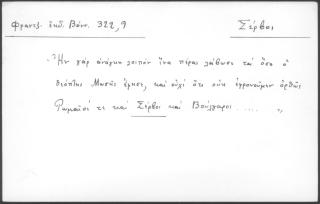 Φραντζ. ἐκδ. Βόνν. 322,9
Σέρβοι
"Ἦν γάρ ἀνάγκη λοιπόν ἵνα πέρας λάβωσι τά ὅσα ὁ
θεόπτης Μωσῆς ἔφησε, καί οὐχί ὅτι οὐκ ἐφρονοῦμεν ὀρθῶς
Ῥωμαῖοί τε καί Σέρβοι καί Βούλγαροι ..... "